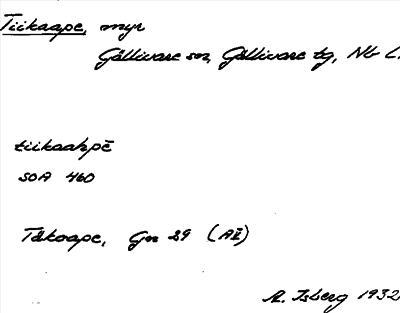 Tiikaape, myr
Gällivare sn, Gällivare tg, Nb L.
tiikaahpē
SOA 460
Tåkoape, Gn 29 (AI)
A. Isberg 1932